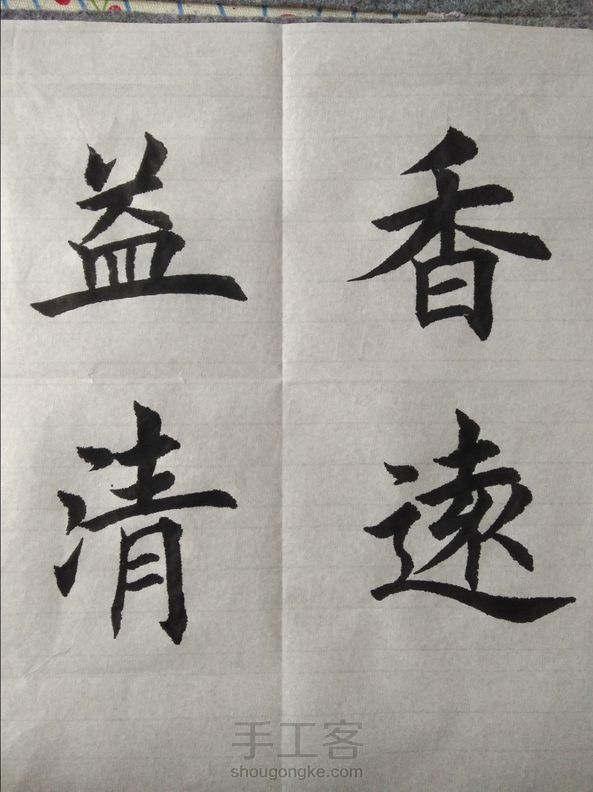 香遠
益清
手工客
shougongke.com